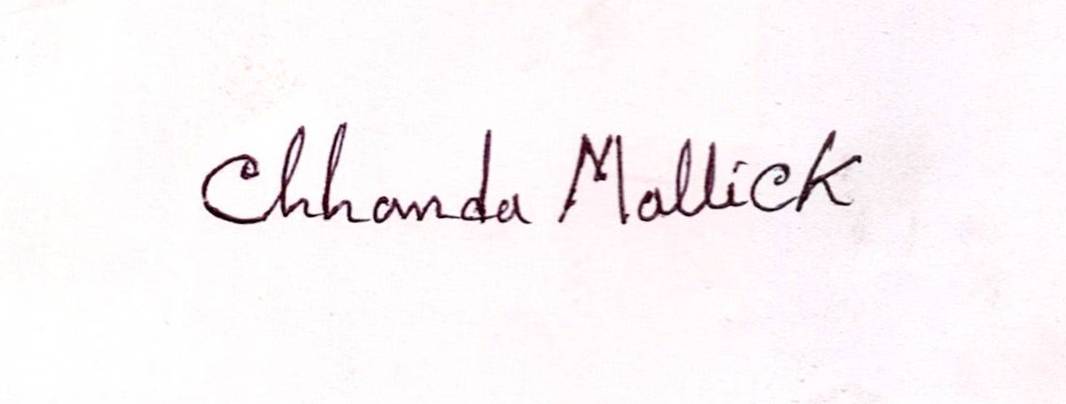 Chhanda Mallick